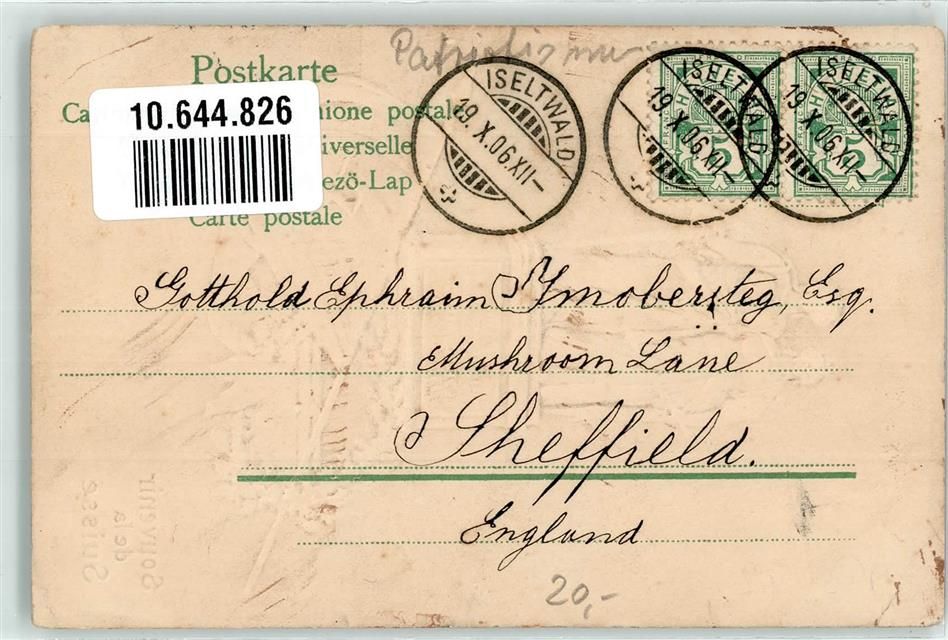 Postkarte
nione postale
iverselle
ező-Lap
Carte postale
10.644.826
ISELTWALD.
19.X.06.XII–
ISELTWALD
19.X.06.XII–
ISELTWALD
19.X.06.XII–
5
5
Gotthold Ephraim Imobersteg, Esq.
Mushroom Lane
Sheffield.
England
20,-
Souvenir
de la
Suisse